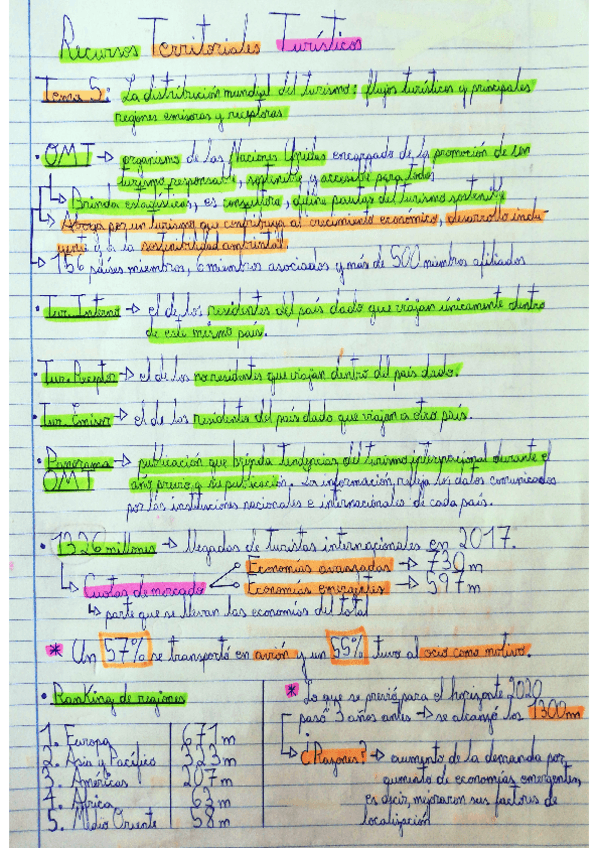 Recursos Territoriales Turísticos
Tema 5: La distribución mundial del turismo: flujos turísticos y principales
regiones emisoras y receptoras
· OMT → organismo de las Naciones Unidas encargado de la promoción de un
turismo responsable, sostenible y accesible para todos
↳ Brinda estadísticas, es consultora, pautas del turismo sostenible
↳ Aboga por un turismo que contribuya al crecimiento económico, desarrollo inclu-
yente y a la sostenibilidad ambiental
↳ 156 países miembros, 6 miembros asociados y más de 500 miembros afiliados
· Tur. Interno → el de los residentes del país dado que viajan únicamente dentro
de este mismo país.
· Tur. Receptor → el de los no residentes que viajan dentro del país dado.
· Tur. Emisor → el de los residentes del país dado que viajan a otro país.
· Panorama → publicación que brinda tendencias del turismo internacional durante el
OMT año previo a su publicación. La información refleja los datos comunicados
por las instituciones nacionales e internacionales de cada país.
· 1326 millones → llegadas de turistas internacionales en 2017.
Economías avanzadas → 730m
↳ Cuotas de mercado
Economías emergentes → 597m
↳ parte que se llevan las economías del total
* Un 57% se transportó en avión y un 55% tuvo al ocio como motivo.
· Ranking de regiones
1. Europa 671m
2. Asia y Pacífico 323m
3. Américas 207m
4. África 63m
5. Medio Oriente 58m
* Lo que se previó para el horizonte 2020
pasó 3 años antes → se alcanzó los 1300m
↳ ¿Razones? → aumento de la demanda por
aumento de economías emergentes,
es decir, mejoraron sus factores de
localización